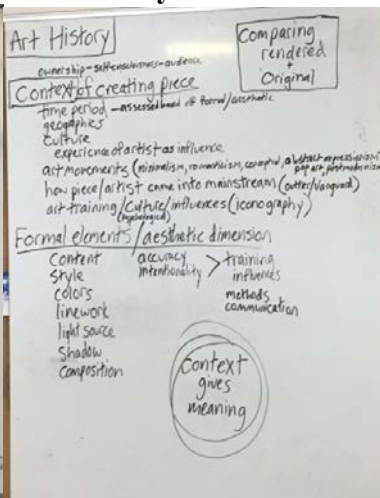 Art History
Comparing
rendered
+
Original
ownership-self consciousness-audience
Context of creating piece
time period - assessed based of formal/aesthetic
geographies
culture
experience of artist as influence
art movements (minimalism, romanticism, conceptual, abstract expressionism
pop art, postmodernism
how piece/artist came into mainstream (outter/vanguard)
art training/culture/influences (iconography)
(psychological)
Formal elements/aesthetic dimension
content accuracy > training
style intentionality influences
colors methods
linework communication
light source
shadow
composition
Context
gives
meaning